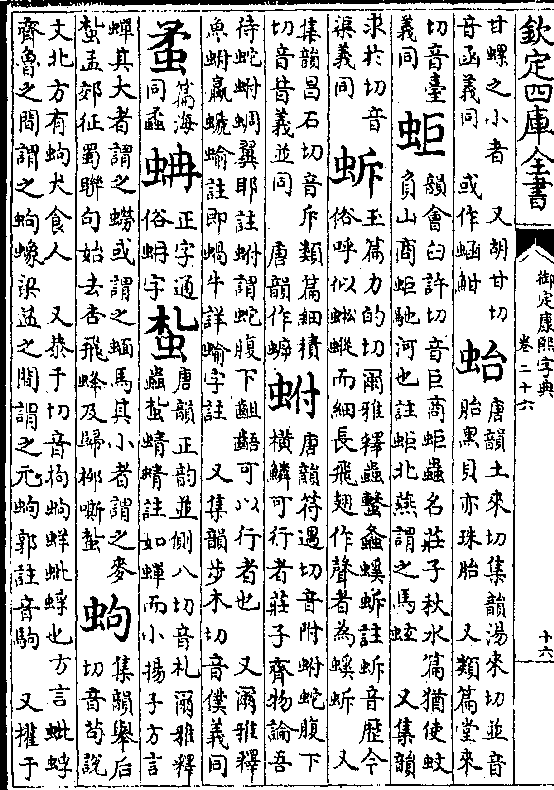 欽定四庫全書
御定康熙字典
卷二十六
十六
甘螺之小者 又胡甘切
音函義同 或作𧋎蚶
蛤 唐韻土來切集韻湯來切並音
胎黑貝亦珠胎 又類篇堂來
切音臺
義同
蚷 韻會臼許切音巨商蚷蟲名莊子秋水篇猶使蚊
負山商蚷馳河也註蚷北燕謂之馬蚿 又集韻
求於切音
渠義同
蚸 玉篇力的切爾雅釋蟲蟿螽螇蚸註蚸音歷今
俗呼似蜙蝑而細長飛翅作聲者為螇蚸 又
集韻昌石切音斥類篇細積
切音昔義並同 唐韻作𧎴
蚹 唐韻符遇切音附蚹蛇腹下
橫鱗可行者莊子齊物論吾
待蛇蚹蜩翼耶註蚹謂蛇腹下齟齬可以行者也 又爾雅釋
魚蚹蠃螔蝓註即蝸牛詳蝓字註 又集韻步木切音僕義同
蟊 篇海
同蟊
蚺 正字通
俗蚺字
蚻 唐韻正韵並側八切音札爾雅釋
蟲蚻蜻蜻註如蟬而小揚子方言
蟬其大者謂之蟧或謂之蝒馬其小者謂之麥
蚻孟郊征蜀聯句始去杏飛蜂及歸柳嘶蚻
蚼 集韻舉后
切音苟說
文北方有蚼犬食人 又恭于切音拘蚼蛘蚍蜉也方言蚍蜉
齊魯之間謂之蚼蟓梁益之間謂之元蚼郭註音駒 又權于